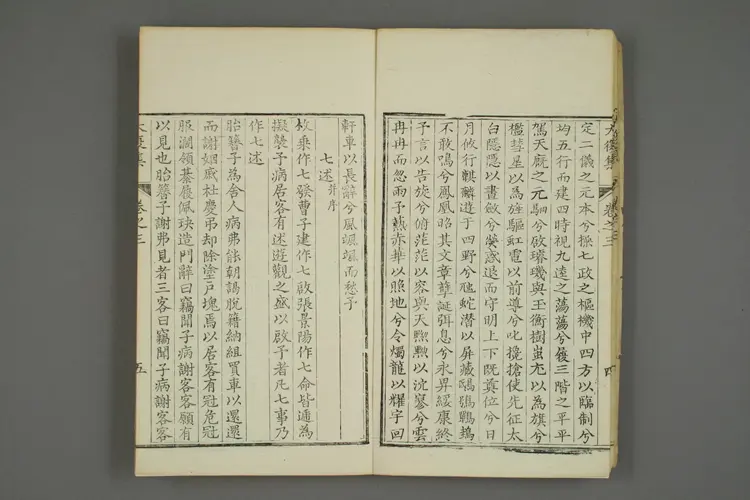 定二儀之元本兮操七政之樞機中四方以臨制兮
均五行而建四時視九逵之蕩蕩兮復三階之平平
駕天廐之元駟兮攽璿璣與玉衡樹蚩尤以為旗兮
檻彗星以為旌驅虹霓以前導兮叱攙搶使先征太
白隱隱以晝斂兮熒惑退而守明上下既奠位兮日
月攸行麒麟遊于四野兮虺蛇潛以屏藏鴟鴞鵂鶹
不敢鳴兮鳳凰昭其文章孽誕弭息兮永昇綏康終
予言以告旋兮俯茫茫以容與天黕黕以沈寥兮雲
冉冉而忽雨予爇赤華以照地兮令燭龍以耀宇回
軒車以長辭兮風颯颯而愁予
七述 并序
枚乗作七發曹子建作七啟張景陽作七命皆逓為
擬襲子病居客有述遊觀之盛以啟予者凡七事乃
作七述
胎簪子為舎人病弗能朝謁脫籍納組買車以還還
而謝姻戚杜慶弔却除塗戸塊焉以居客有冠危冠
服瀾領綦履佩玦造門辭曰竊聞子病謝客客願有
以見也胎簪子謝弗見者三客曰竊聞子病謝客客
大復集 卷之三 四
大復集 卷之三 五